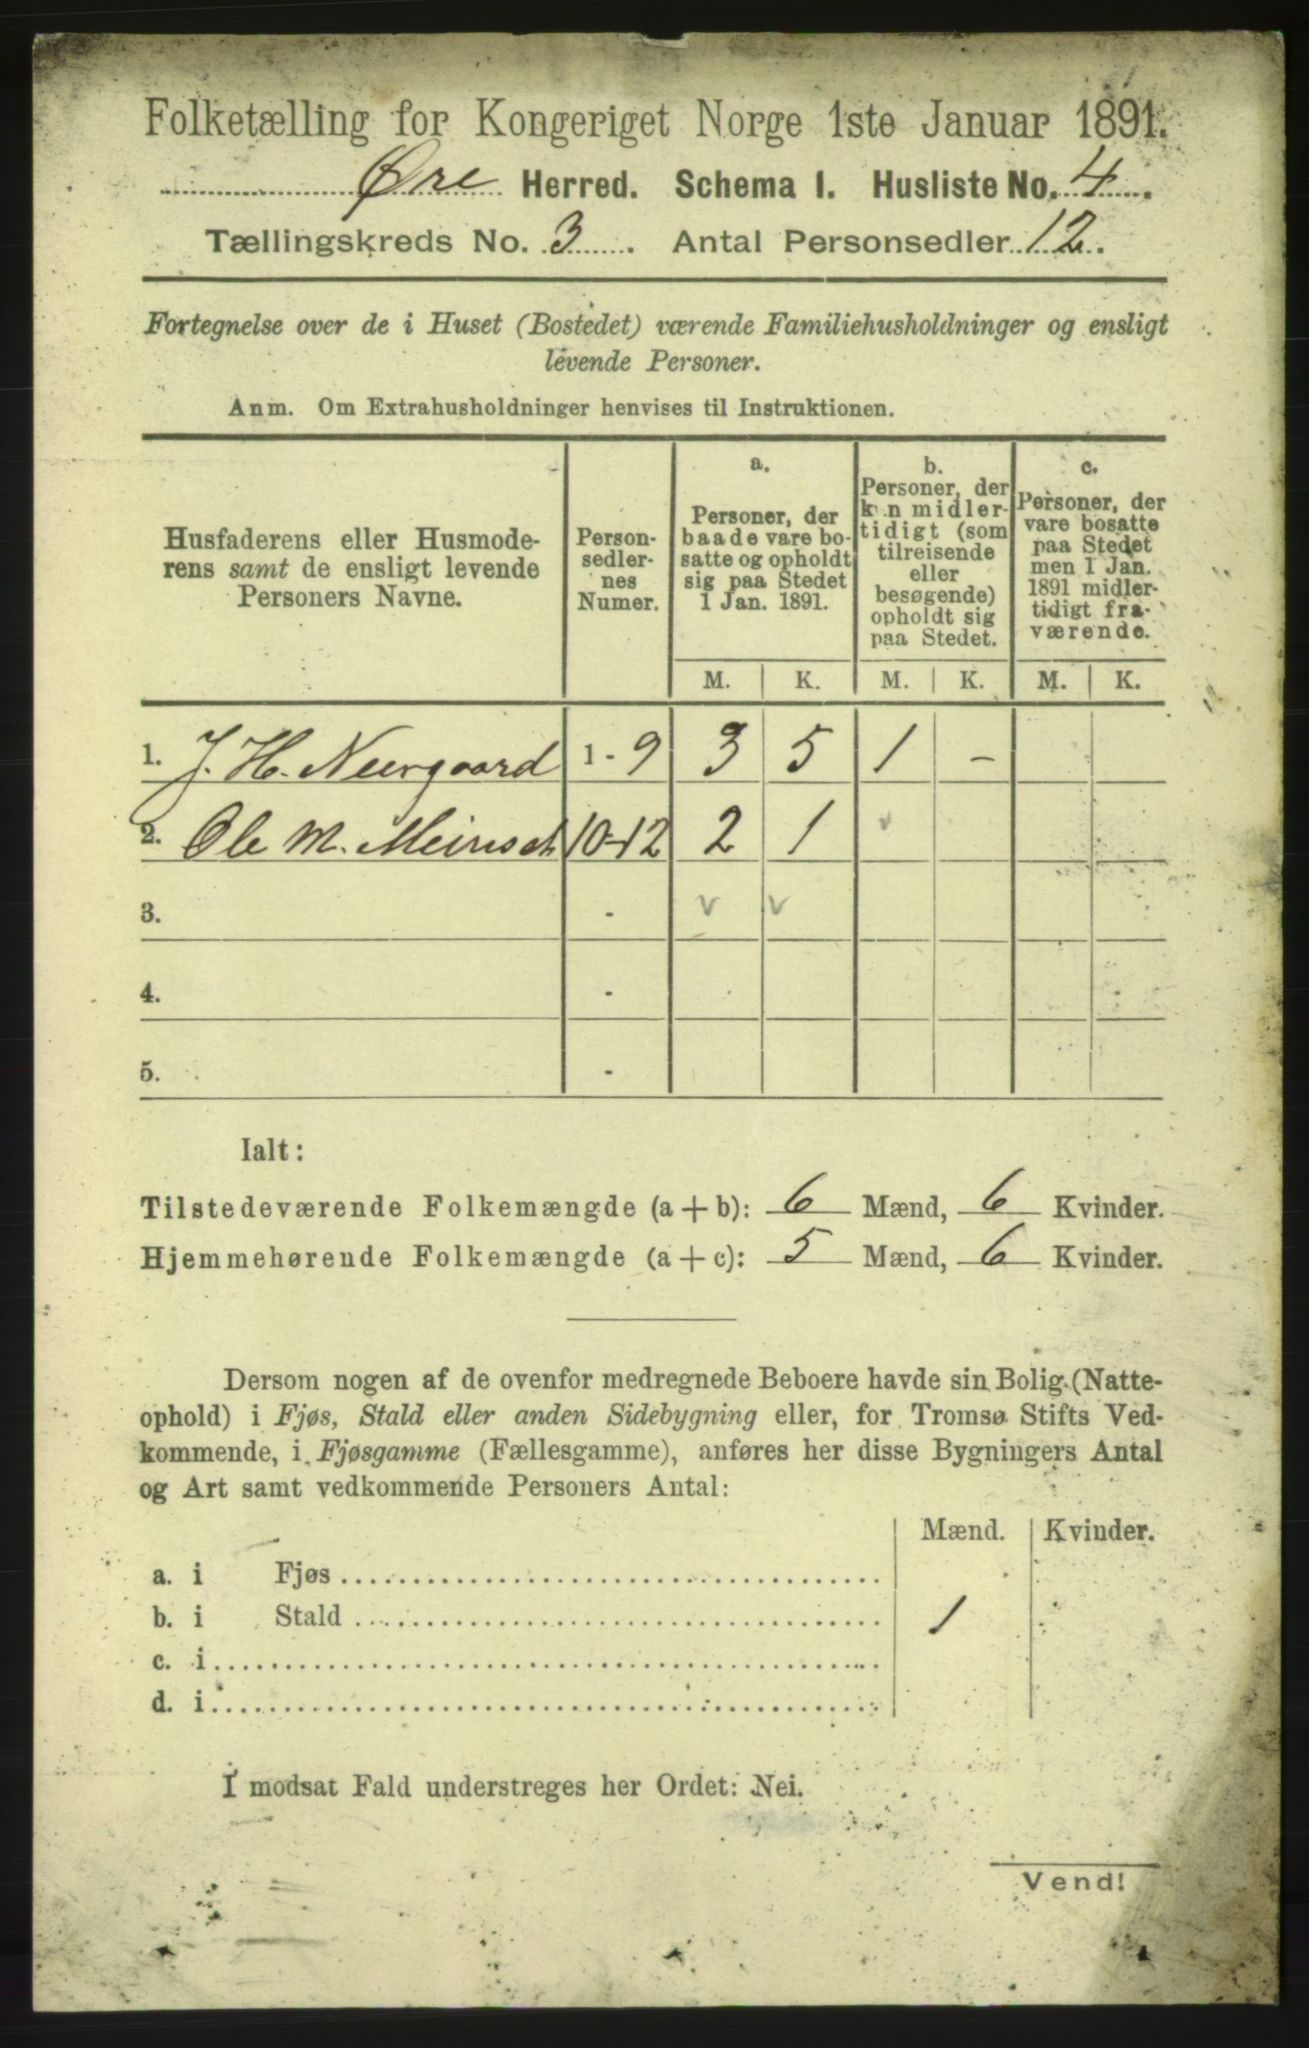 Folketælling for Kongeriget Norge 1ste Januar 1891.
Øre Herred. Schema I. Husliste No. 4.
Tællingskreds No. 3. Antal Personsedler 12.
Fortegnelse over de i Huset (Bostedet) værende Familiehusholdninger og ensligt
levende Personer.
Anm. Om Extrahusholdninger henvises til Instruktionen.
Husfaderens eller Husmode-
rens samt de ensligt levende
Personers Navne.
Person-
sedler-
nes
Numer.
a.
Personer, der
baade vare bo-
satte og opholdt
sig paa Stedet
1 Jan. 1891.
b.
Personer, der
kun midler-
tidigt (som
tilreisende
eller
besøgende)
opholdt sig
paa Stedet.
c.
Personer, der
vare bosatte
paa Stedet
men 1 Jan.
1891 midler-
tidigt fra-
værende.
M. K. M. K. M. K.
1. J. H. Neergaard 1 - 9 3 5 1 -
2. Ole M. 10-12 2 1 v
3. - v v
4. -
5. -
Ialt:
Tilstedeværende Folkemængde (a + b): 6 Mænd, 6 Kvinder.
Hjemmehørende Folkemængde (a + c): 5 Mænd, 6 Kvinder.
Dersom nogen af de ovenfor medregnede Beboere havde sin Bolig (Natte-
ophold) i Fjøs, Stald eller anden Sidebygning eller, for Tromsø Stifts Ved-
kommende, i Fjøsgamme (Fællesgamme), anføres her disse Bygningers Antal
og Art samt vedkommende Personers Antal:
Mænd. Kvinder.
a. i Fjøs
b. i Stald 1
c. i
d. i
I modsat Fald understreges her Ordet: Nei.
Vend!